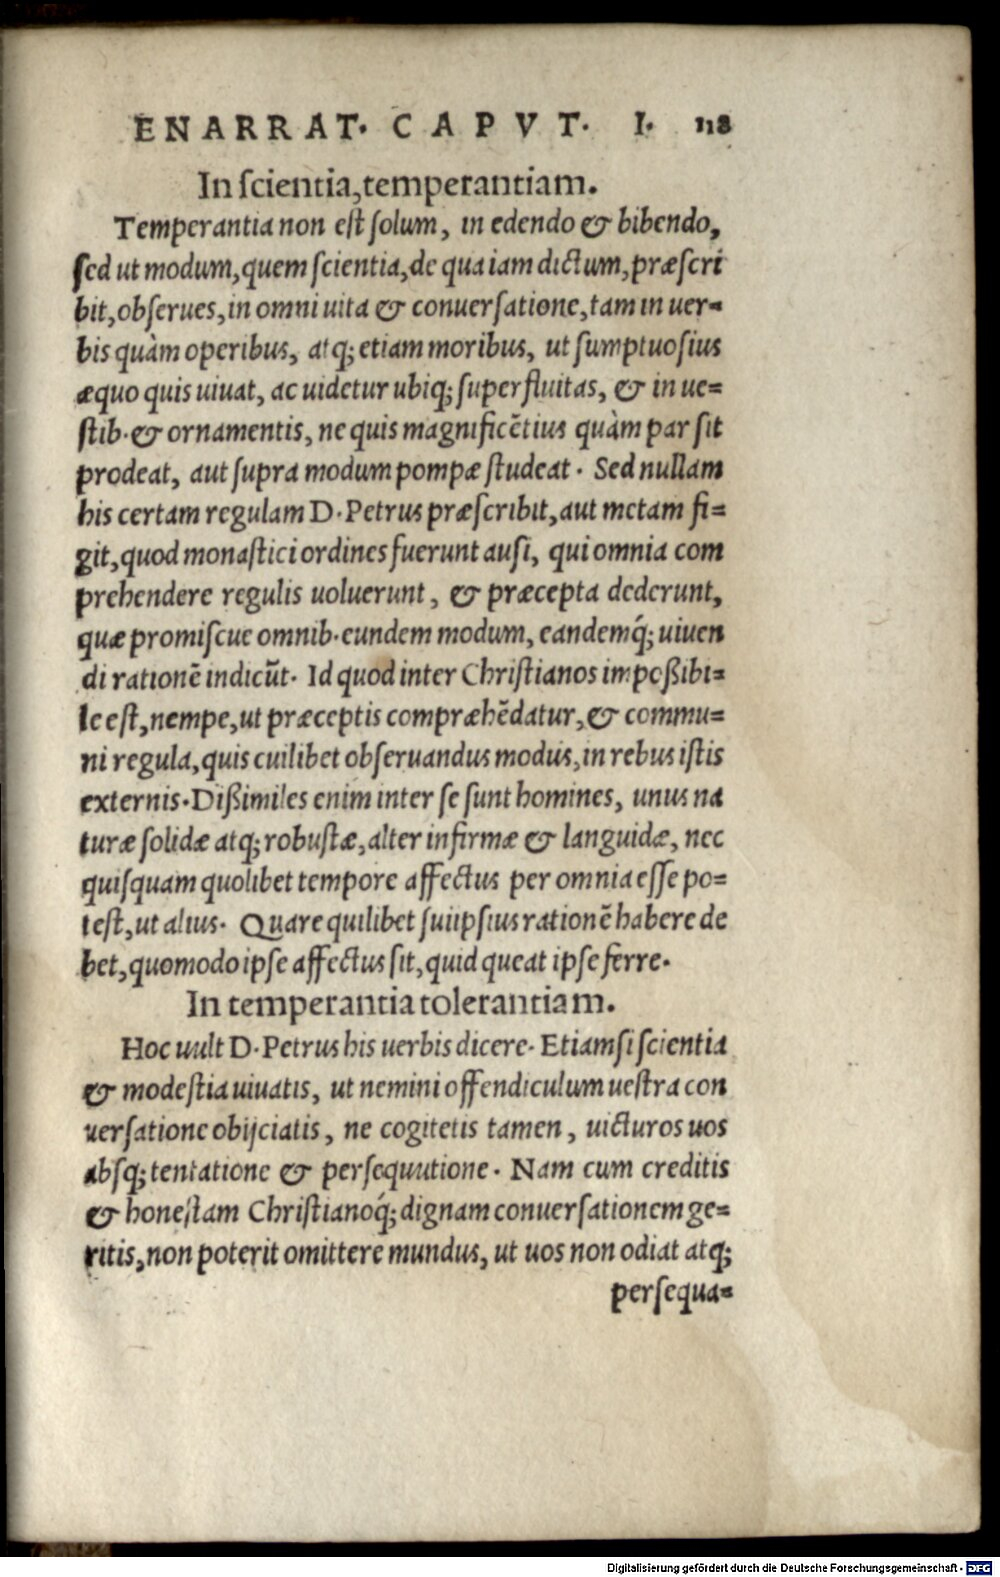 ENARRAT. CAPVT. I. 118
In scientia, temperantiam.
Temperantia non est solum, in edendo & bibendo,
sed ut modum, quem scientia, de qua iam dictum, præscri
bit, obserues, in omni uita & conuersatione, tam in uer=
bis quàm operibus, atq; etiam moribus, ut sumptuosius
æquo quis uiuat, ac uidetur ubiq; superfluitas, & in ue=
stib. & ornamentis, ne quis magnificẽtius quàm par sit
prodeat, aut supra modum pompæ studeat. Sed nullam
his certam regulam D. Petrus præscribit, aut metam fi=
git, quod monastici ordines fuerunt ausi, qui omnia com
prehendere regulis uoluerunt, & præcepta dederunt,
quæ promiscue omnib. eundem modum, eandemq́; uiuen
di rationẽ indicũt. Id quod inter Christianos impoßibi=
le est, nempe, ut præceptis compræhẽdatur, & commu=
ni regula, quis cuilibet obseruandus modus, in rebus istis
externis. Dißimiles enim inter se sunt homines, unus na
turæ solidæ atq; robustæ, alter infirmæ & languidæ, nec
quisquam quolibet tempore affectus per omnia esse po=
test, ut alius. Quare quilibet sui ipsius rationẽ habere de
bet, quomodo ipse affectus sit, quid queat ipse ferre.
In temperantia tolerantiam.
Hoc uult D. Petrus his uerbis dicere. Etiamsi scientia
& modestia uiuatis, ut nemini offendiculum uestra con
uersatione obijciatis, ne cogitetis tamen, uicturos uos
absq; tentatione & persequutione. Nam cum creditis
& honestam Christianoq́; dignam conuersationem ge=
ritis, non poterit omittere mundus, ut uos non odiat atq;
persequa=
Digitalisierung gefördert durch die Deutsche Forschungsgemeinschaft - DFG